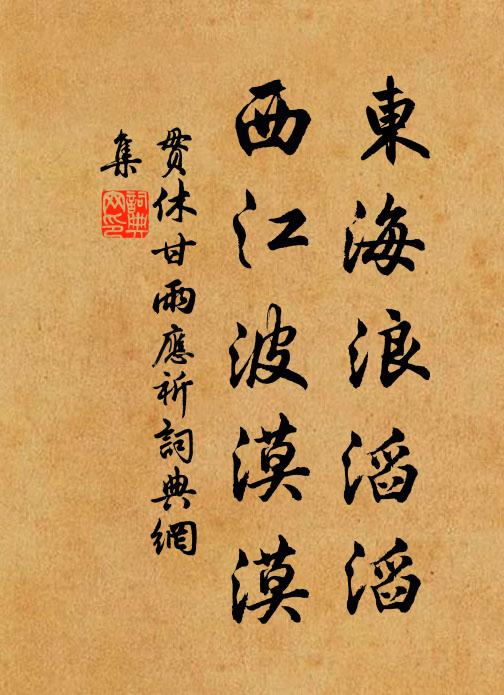 東海浪滔滔
西江波漠漠
貫休甘雨應祈詞典網
集
詞典
网印